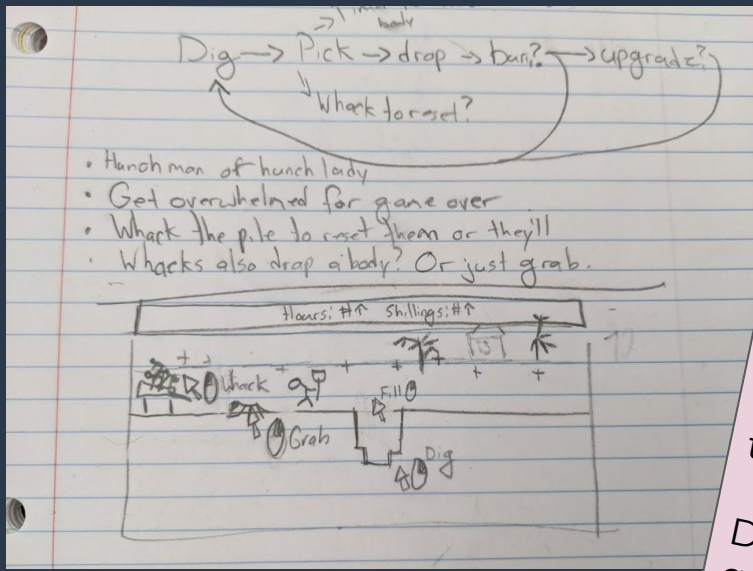 body
Dig → Pick → drop → bury? → upgrade?
Whack to reset?
• Hunch man of hunch lady
• Get overwhelmed for game over
• Whack the pile to reset them or they'll
• Whacks also drop a body? Or just grab.
Hours: #↑ Shillings: #↑
Whack
Fill
Grab
Dig
D